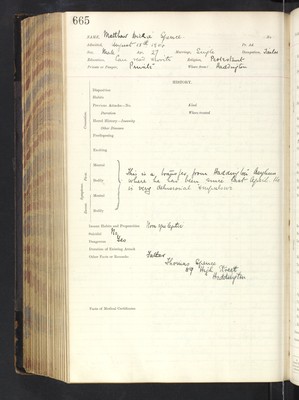 665
NAME, Matthew Spence No.
Admitted, August 18th 190 Pt. Ad.
Sex, Male Age, 27 Marriage, Single Occupation, Tailor
Education, Can read & write Religion, Protestant
Private or Pauper, Private Where from? Haddington
HISTORY.
Disposition
Habits
Previous Attacks—No. Kind
Duration Where treated
Hered. History—Insanity
Other Diseases
Predisposing
Exciting
Mental
Bodily
Mental
Bodily
This is a transfer from Haddington Asylum
where he has been since last April. He
is very delusional & impulsive
Insane Habits and Propensities Non epileptic
Suicidal No
Dangerous Yes
Duration of Existing Attack
Other Facts or Remarks Father
Thomas Spence
69 High Street
Haddington
Facts of Medical Certificates